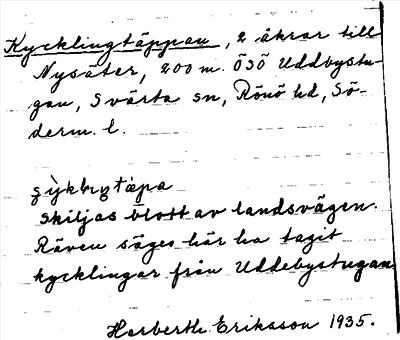 Kycklingtäppan, 2 åkrar till
Nysäter, 200 m. ÖSÖ Uddbystu-
gan, Svärta sn, Rönö hd, Sö-
derm. l.
skiljas blott av landsvägen.
Räven säges här ha tagit
kycklingar från Uddebystugan
Herberth Eriksson 1935.